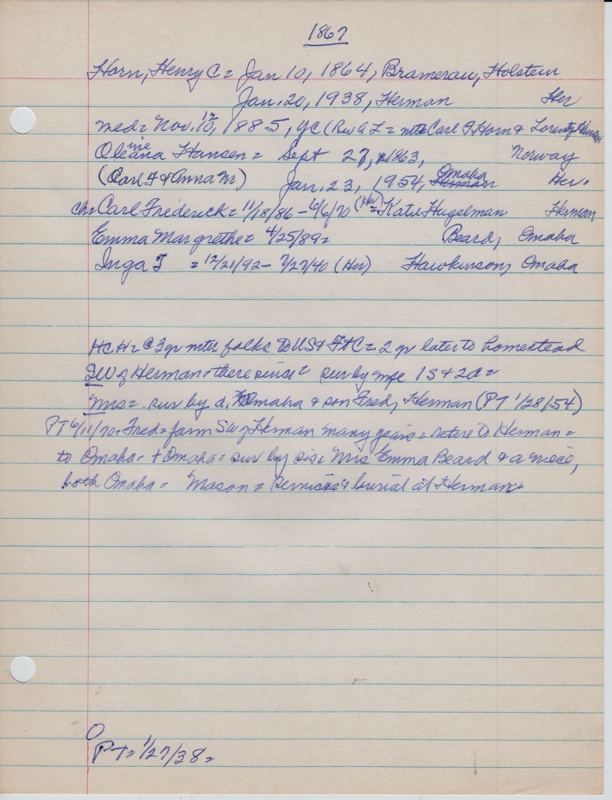 1867
Horn, Henry C = Jan 10, 1864, Bramerau, Holstein
Jan. 20, 1938, Herman Her
med = Nov. 10, 12 1885, yc (Rev G L = mtr Carl F. Horn &
Oleana ine Hansen = Sept 27, 1863, Norway
(Carl F & Anna M) Jan. 23, 1954, Herman Omaha Her.
ch = Carl Frederick = 11/18/86 - 6/6/70 (Her) = Katie Hugelman Herman
Emma Margrethe = 4/25/89 = Beard, Omaha
Inga T = 12/21/92 - 7/27/40 (Her) Hawkinson, Omaha
HCH = @ 3 yr mtr folks to US & Ft C = 2 yr later to homestead
SW of Herman = there since = sur by wife 1 S & 2 d =
Mrs = sur by d, Omaha & son Fred, Herman (PT 1/28/54)
PT 6/11/70 = Fred = farm SW of Herman many years = retire to Herman =
to Omaha = + Omaha = sur by sis = Mrs Emma Beard & a niece,
both Omaha = Mason = services & burial at Herman
PT = 1/27/38 =